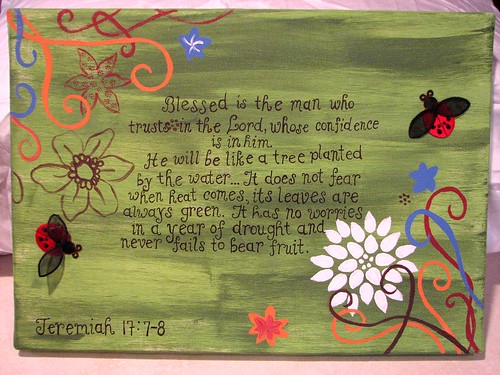 Blessed is the man who
trusts in the Lord, whose confidence
is in him.
He will be like a tree planted
by the water... It does not fear
when heat comes, its leaves are
always green. It has no worries
in a year of drought and
never fails to bear fruit.
Jeremiah 17:7-8